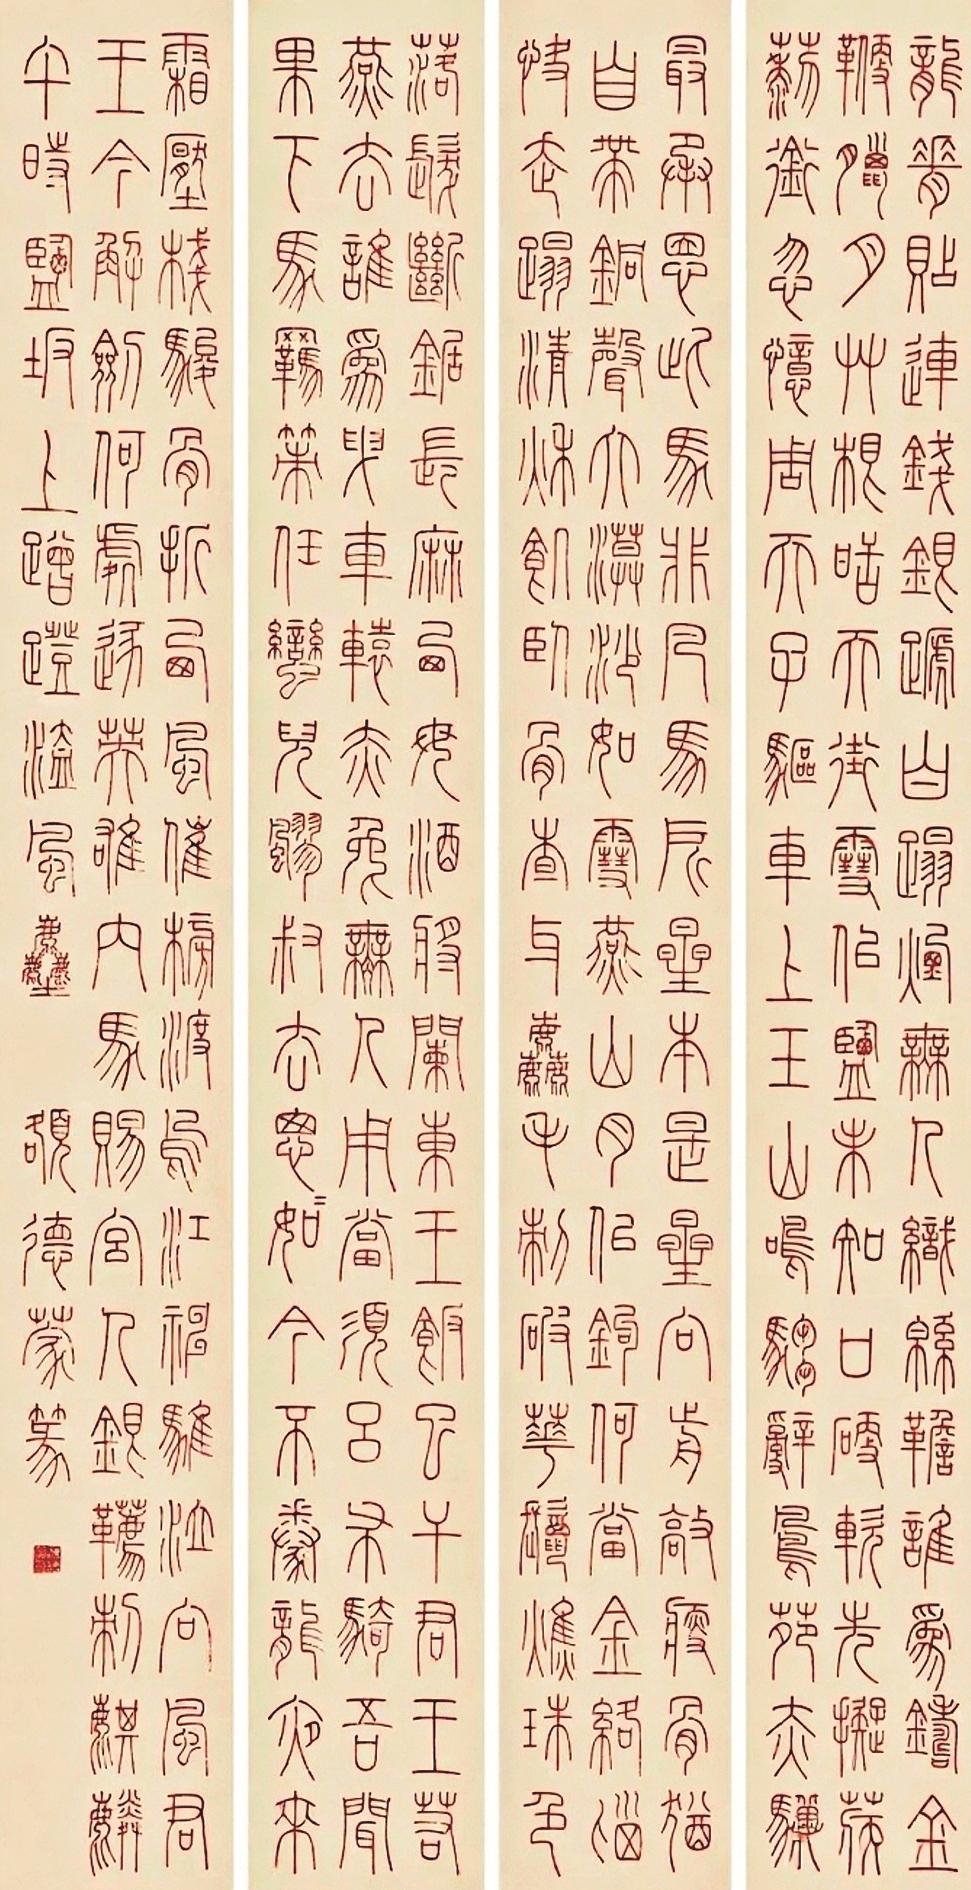 龍脊貼連錢銀蹏白蹋煙無人織錦韂誰爲鑄金
鞭臘月艸根甜天街雪似鹽未知口硬軟先擬蒺
藜銜忽憶周天子驅車上玉山鳴騶辭鳳苑赤驥
最承恩此馬非凡馬房星本是星向前敲瘦骨猶
自帶銅聲大漠沙如雪燕山月似鉤何當金絡腦
快走蹋清秋飢臥骨查牙麤毛刺破花鬣焦珠色
落髮斷鋸長麻西母酒將闌東王飯已干君王若
燕去誰爲曳車轅赤兔無人用當須呂布騎吾聞
果下馬羈策任蠻兒飂叔去怱如今不豢龍夜來
霜壓棧駿骨折西風催榜渡烏江神騅泣向風君
王今解劍何處逐英雄內馬賜宮人銀韉刺麒麟
午時鹽坂上蹭蹬溘風塵 額德蒙篆